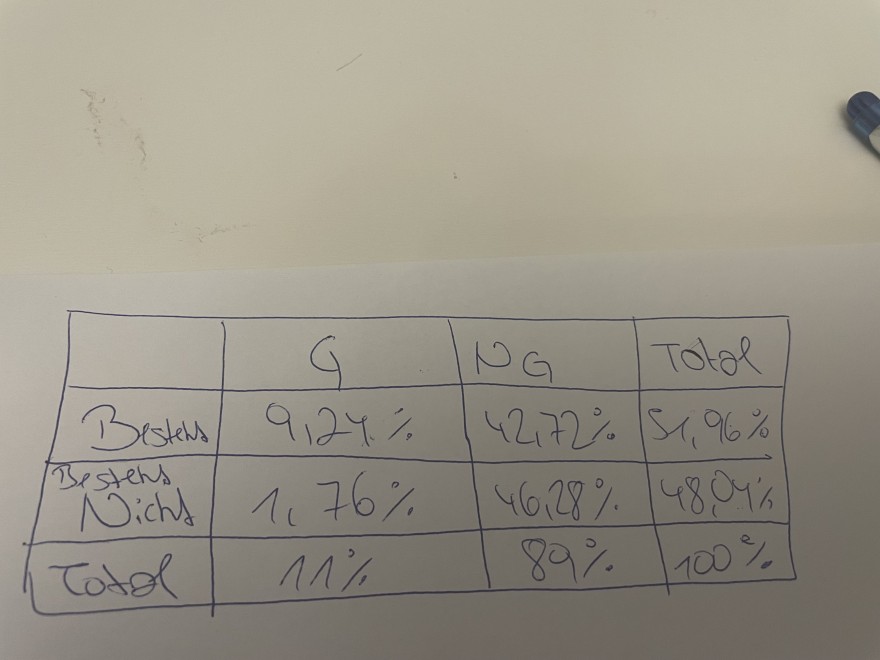 G NG Total
Besteht 9,24% 42,72% 51,96%
Besteht
Nicht 1,76% 46,28% 48,04%
Total 11% 89% 100%